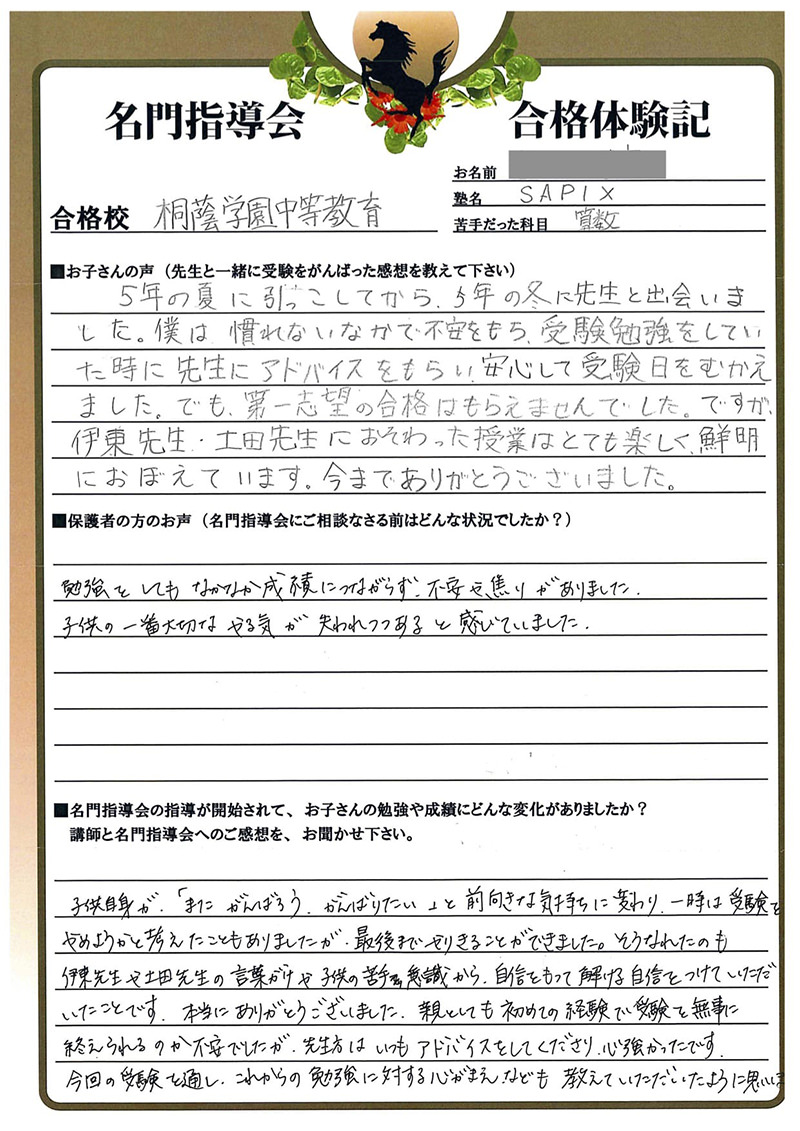 名門指導会 合格体験記
お名前
塾名 SAPIX
合格校 桐蔭学園中等教育
苦手だった科目 算数
■お子さんの声（先生と一緒に受験をがんばった感想を教えて下さい）
5年の夏に引っこしてから、5年の冬に先生と出会いま
した。僕は、慣れないなかで不安をもち、受験勉強をしてい
た時に先生にアドバイスをもらい、安心して受験日をむかえ
ました。でも、第一志望の合格はもらえませんでした。ですが、
伊東先生・土田先生におそわった授業はとても楽しく、鮮明
におぼえています。今までありがとうございました。
■保護者の方のお声（名門指導会にご相談なさる前はどんな状況でしたか？）
勉強をしてもなかなか成績につながらず、不安や焦りがありました。
子供の一番大切なやる気が失われつつあると感じていました。
■名門指導会の指導が開始されて、お子さんの勉強や成績にどんな変化がありましたか？
講師と名門指導会へのご感想を、お聞かせ下さい。
子供自身が、「またがんばろう、がんばりたい」と前向きな気持ちに変わり、一時は受験を
やめようかと考えたこともありましたが、最後までやりきることができました。そうなれたのも
伊東先生や土田先生の言葉がけや子供の苦手意識から、自信をもって解ける自信をつけていただ
いたことです。本当にありがとうございました。親としても初めての経験で受験を無事に
終えられるのか不安でしたが、先生方はいつもアドバイスをしてくださり、心強かったです。
今回の受験を通し、これからの勉強に対する心がまえなども教えていただいたように思いま